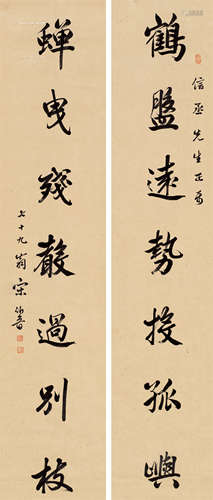 鶴盤遠勢投孤嶼
信丞先生正篆
蟬曳殘聲過別枝
七十九翁宋伯魯